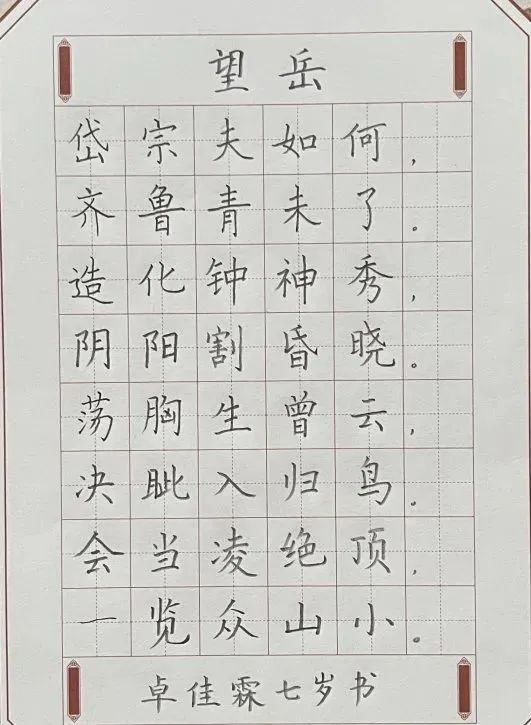 望岳
岱宗夫如何，
齐鲁青未了。
造化钟神秀，
阴阳割昏晓。
荡胸生曾云，
决眦入归鸟。
会当凌绝顶，
一览众山小。
卓佳霖七岁书